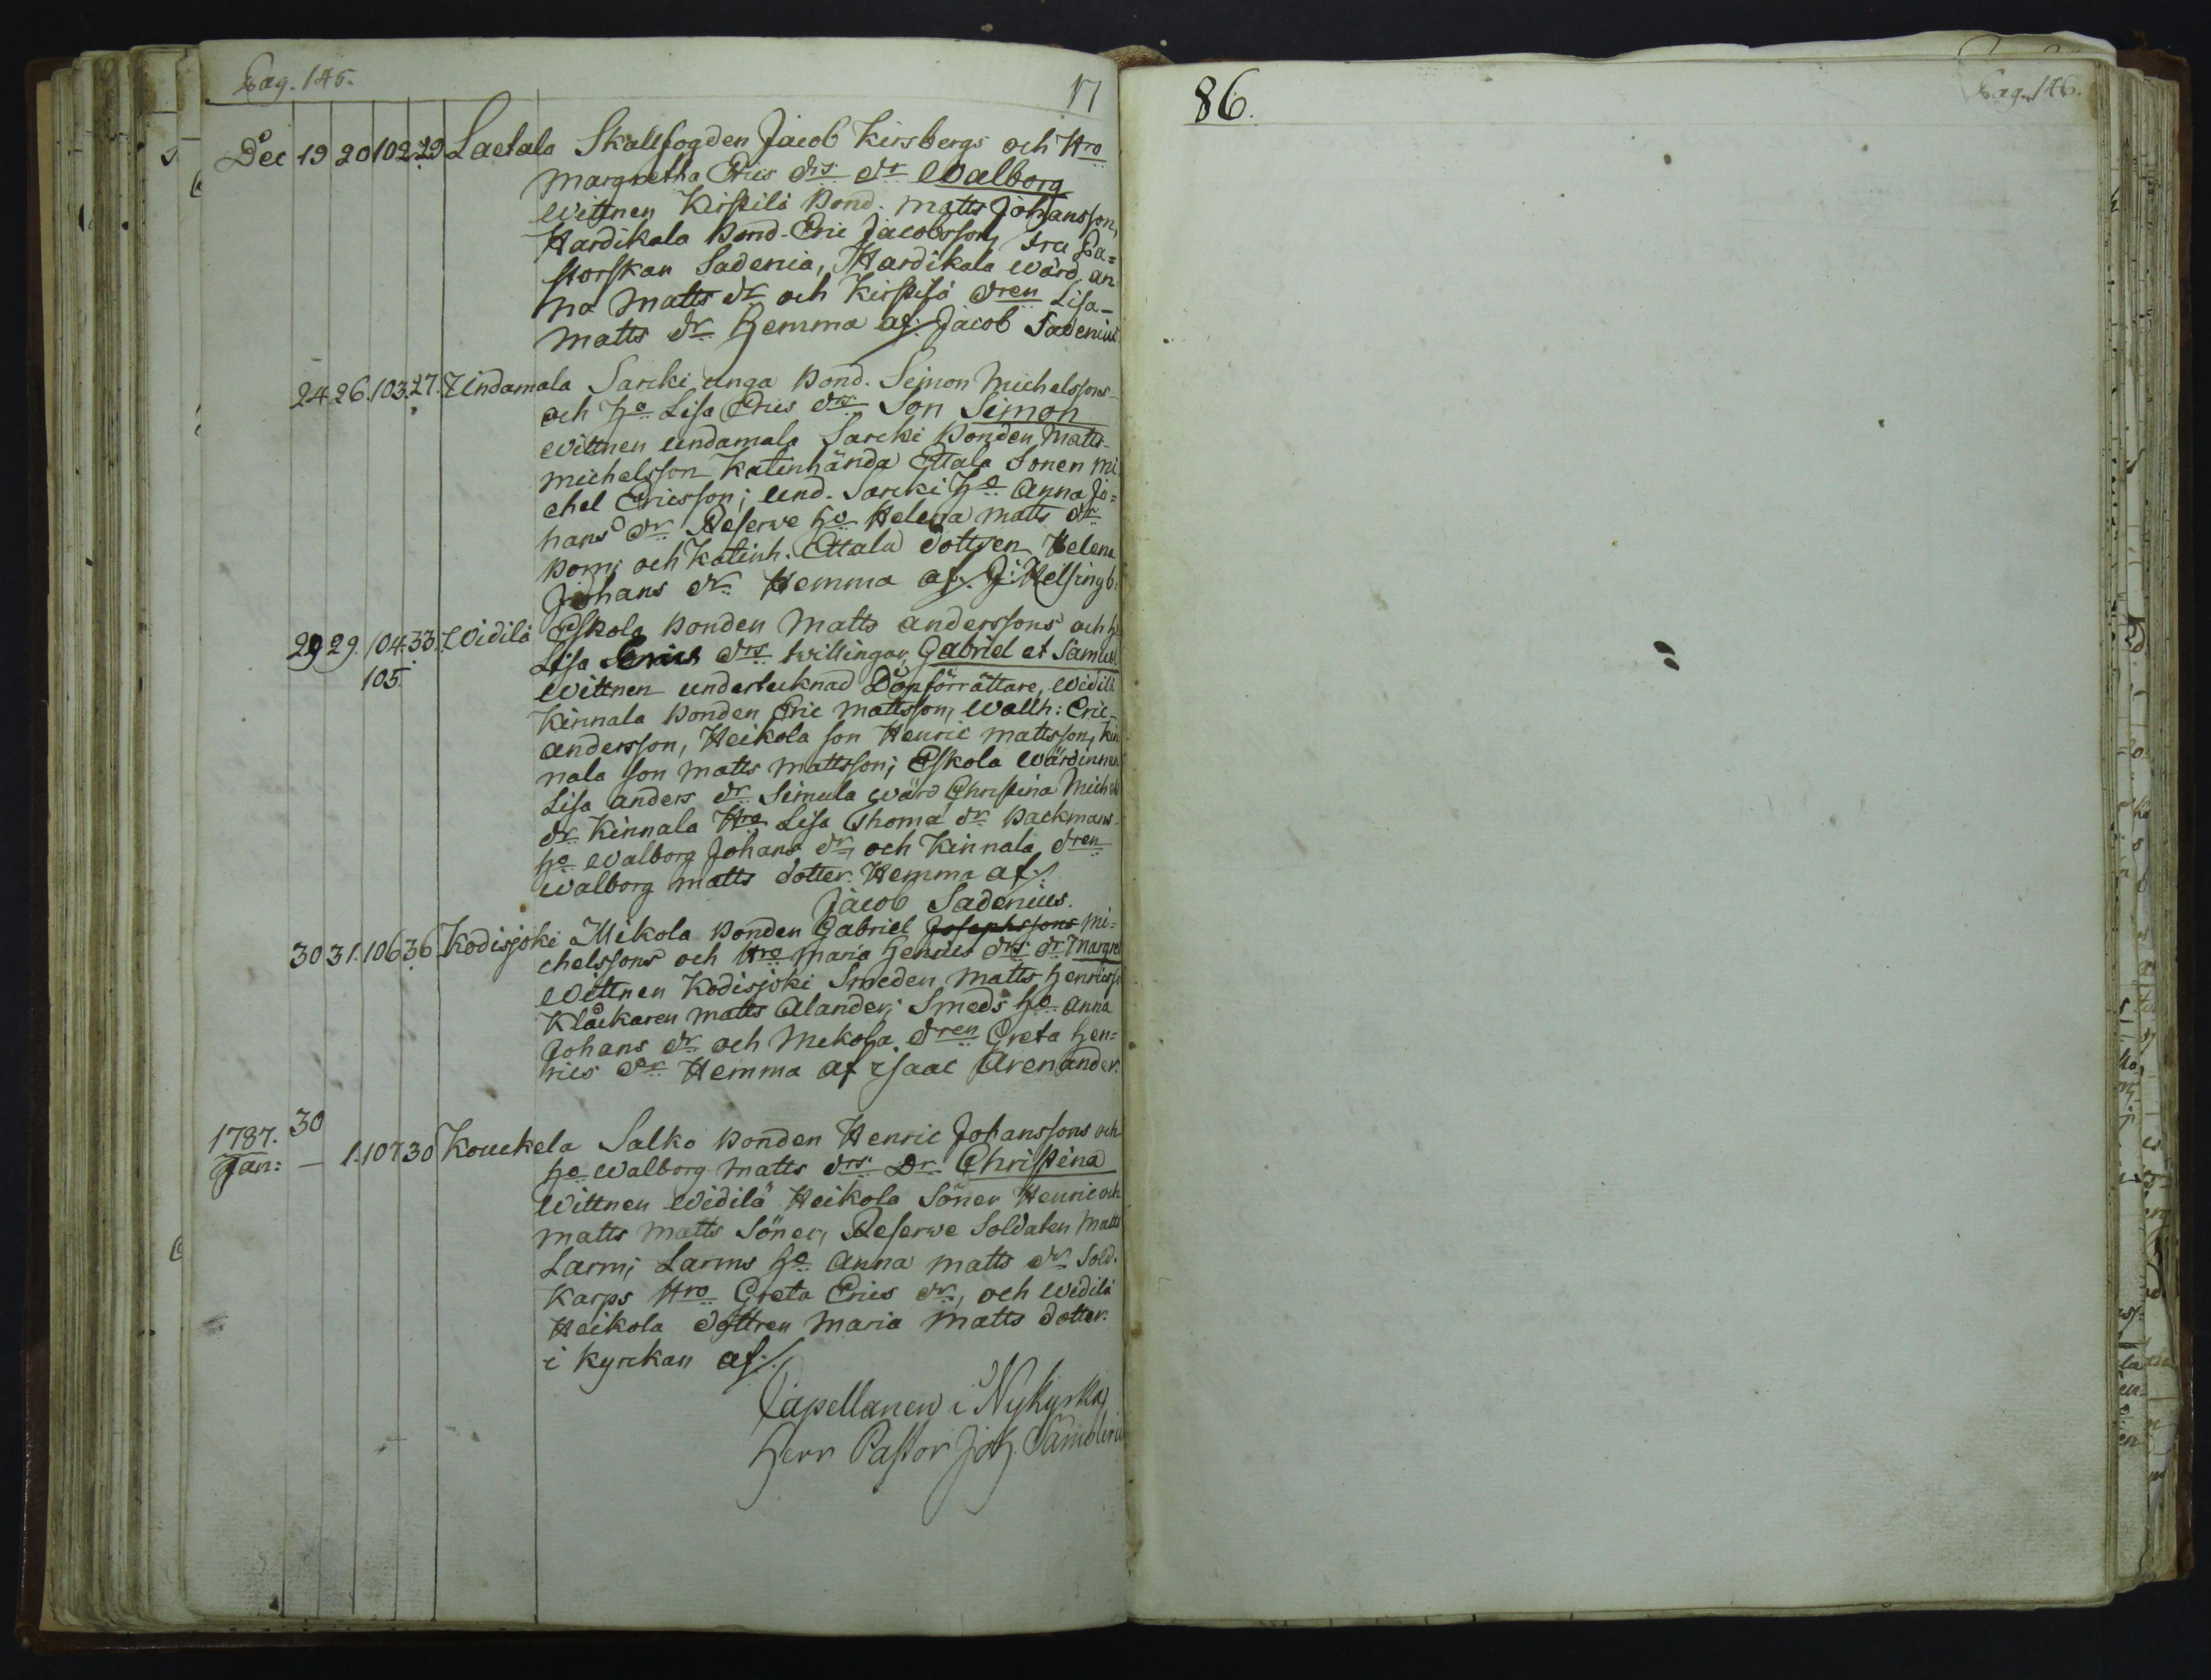 Pag. 145.
17
Dec 19 20 102 29 Laetala Skallfogden Jacob Kirsbergs och Hro
Margretha Erics drs dr Walborg
Wittnen Kirstilä Bond. Matts Johansson,
Hardikala Bond. Eric Jacobsson, Fru Pa=
storskan Sadenia, Hardikala Wärd. An
na Matts dr och Kirstilä dren Lisa
Matts dr Hemma af. Jacob Sadenius
24 26. 103. 27. Undamala Sarcki unga Bond. Simon Michelssons
och Ho Lisa Erics drs Son Simon
Wittnen Undamala Sarcki Bonden Matts
Michelsson Katinhända Ettala Sonen Mi
chel Ericsson; Und. Sarcki Ho Anna Jo=
hans dr Reserve Ho Helena Matts dr
Born; och Katinh. Ettala dottren Helena
Johans dr Hemma af. J: Helsingb:
29 29. 104. 33. Widilä Eskola Bonden Matts Anderssons och H
105.
Lisa drs twillingar, Gabriel et Samuel
Wittnen undertecknad Döpförrättare, Widilä
Kinnala Bonden Eric Mattsson, Wallh: Eric
Andersson, Heikola son Henric Mattsson, Kin
nala son Matts Mattsson; Eskola Wärdinnan
Lisa Anders dr Simula Wärd Christina Michels
dr Kinnala Hro Lisa Thoma dr Backmans
Ho Walborg Johans dr, och Kinnala dren
Walborg Matts dotter. Hemma af.
Jacob Sadenius.
30 31. 106 36 Kodisjoki Mikola Bonden Gabriel Josephssons Mi=
chelssons och Hro Maria Henrics drs dr Margret
Wittnen Kodisjoki Smeden Matts Henricss
Klåckaren Matts Alander; Smeds Ho Anna
Johans dr och Mekola dren Greta Hen=
rics dr Hemma af Isaac Arenander.
1787. 30
Jan: — 1. 107 30 Kouckela Salko Bonden Henric Johanssons och
Ho Walborg Matts drs Dr Christina
Wittnen Widilä Heikola Söner Henric och
Matts Matts Söner, Reserve Soldaten Matts
Larm; Larms Ho Anna Matts dr Sold.
Karps Hro Greta Erics dr, och Widilä
Heikola dottren Maria Matts dotter.
i Kyrckan af.
Capellanen i Nykyrka,
Herr Pastor Joh.
86.
Pag. 146.